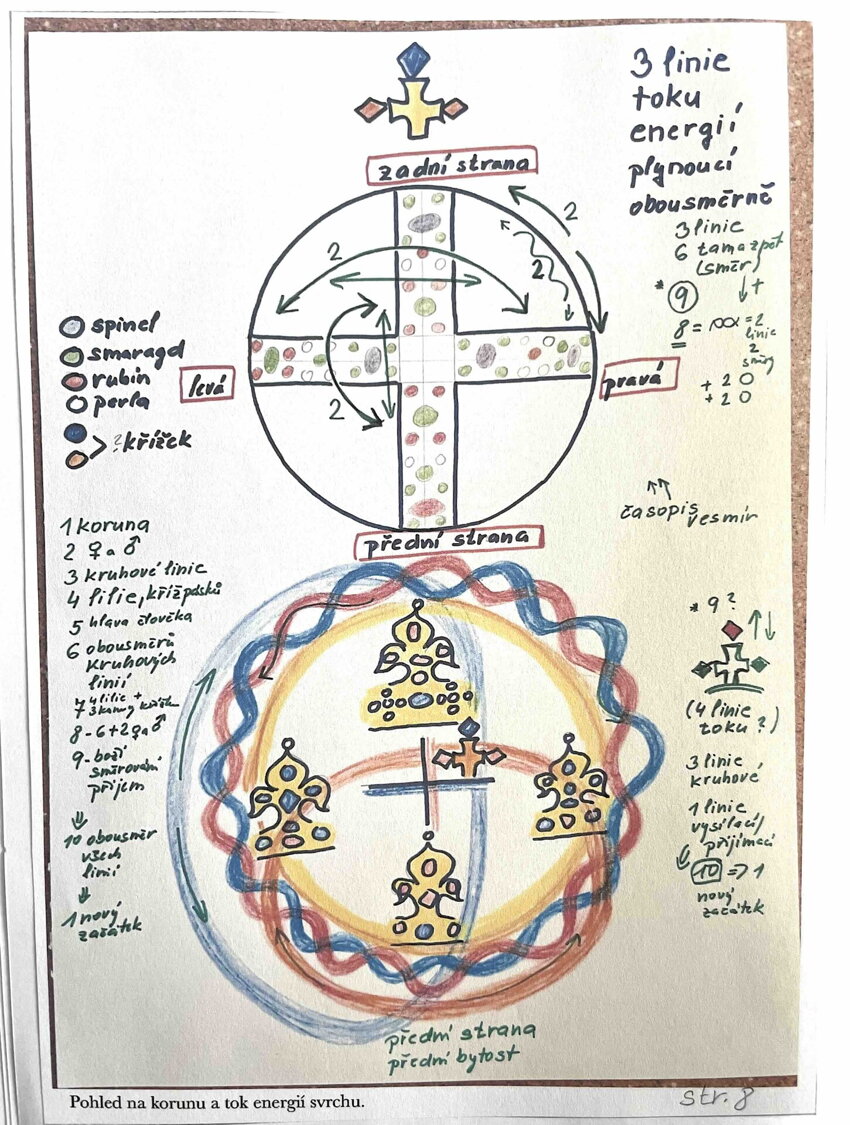 3 linie
toku
energií
plynoucí
obousměrně
zadní strana
2
2
2
2
3 linie
6 tam a zpět
(směr)
* 9
↓ +
8 = = 2
linie
2
směry
+ 2 0
+ 2 0
spinel
smaragd
rubín
perla
> ? křížek
levá
pravá
přední strana
časopis
vesmír
1 koruna
2 ♀ a ♂
3 kruhové linie
4 lilie, kříž pásků
5 hlava člověka
6 obousměrů
kruhových
linií
7 4 lilie +
8 - 6 + 2 ♀ a ♂
9 - boží
směrování
příjem
⇓
10 obousměr
všech
linií
⇓
1 nový
začátek
* 9 ?
↑↓
(4 linie
toku ?)
3 linie
kruhové
1 linie
vysílací/
přijímací
10 => 1
nový
začátek
přední strana
přední bytost
Pohled na korunu a tok energií svrchu.
str. 8